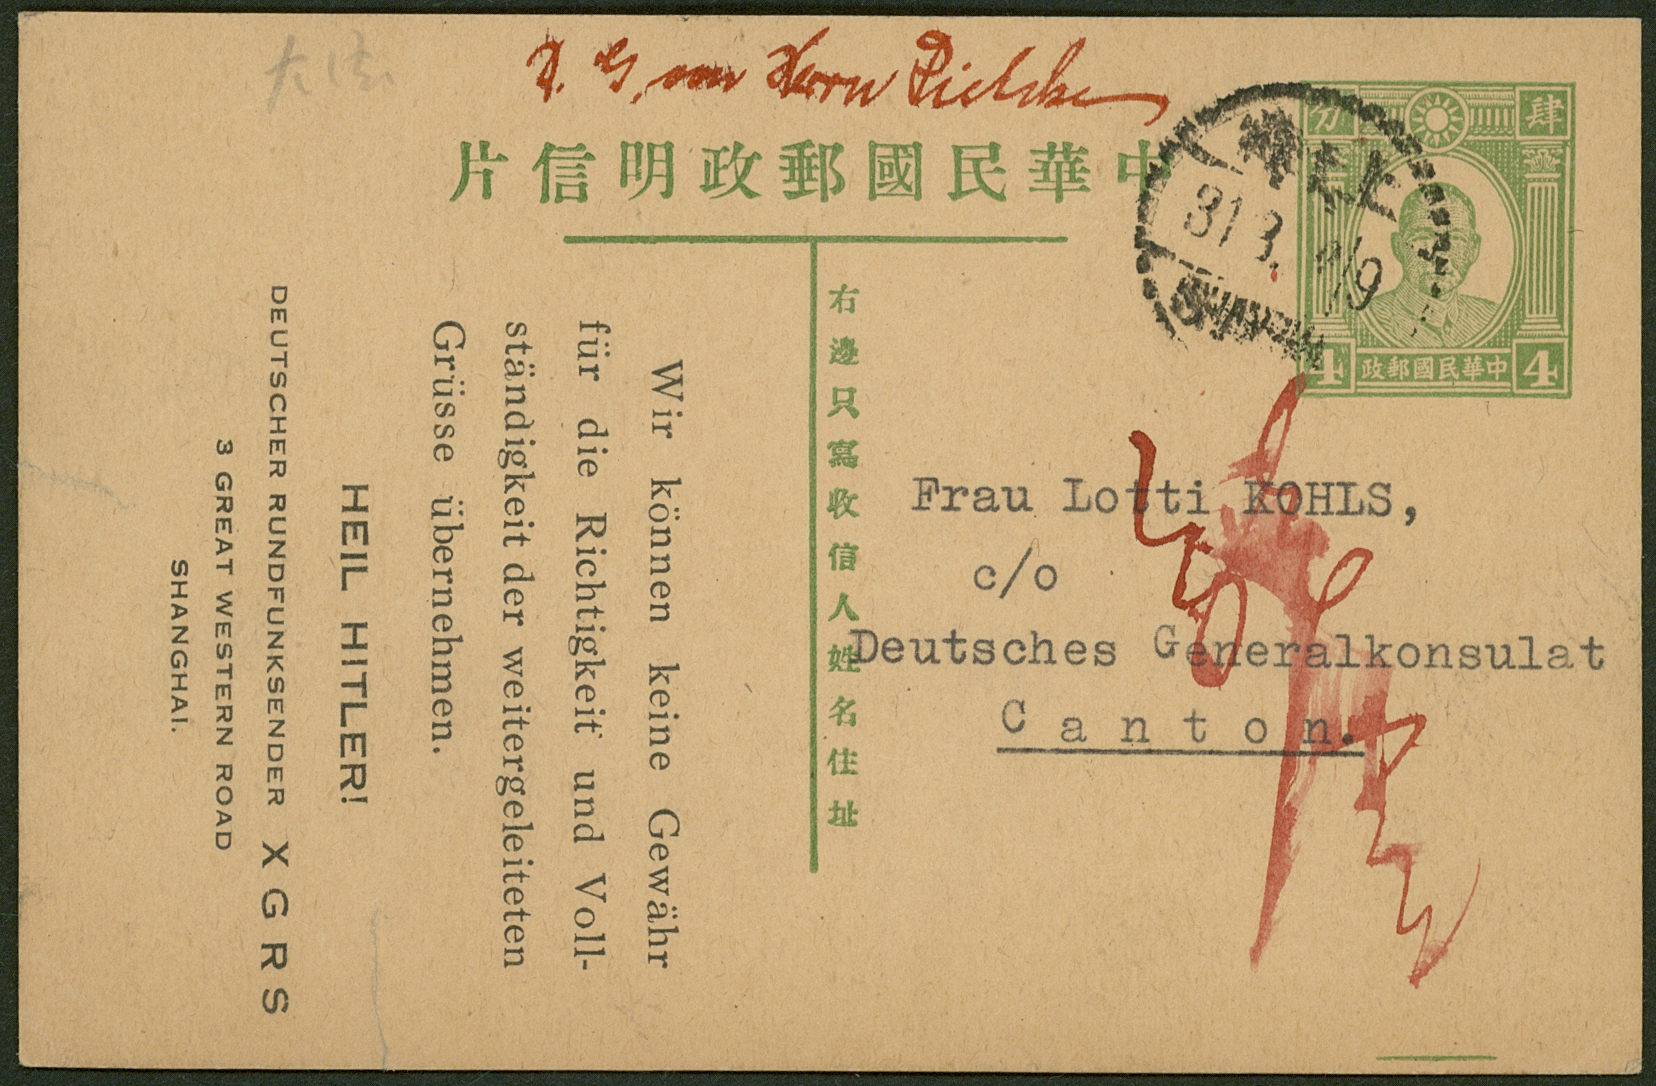 中華民國郵政明信片
分 肆
4 中華民國郵政 4
上海
31 3.
SHANGHAI
右邊只寫收信人姓名住址
Frau Lotti KOHLS,
c/o
Deutsches Generalkonsulat
C a n t o n.
Wir können keine Gewähr
für die Richtigkeit und Voll-
ständigkeit der weitergeleiteten
Grüsse übernehmen.
HEIL HITLER!
DEUTSCHER RUNDFUNKSENDER X G R S
3 GREAT WESTERN ROAD
SHANGHAI.